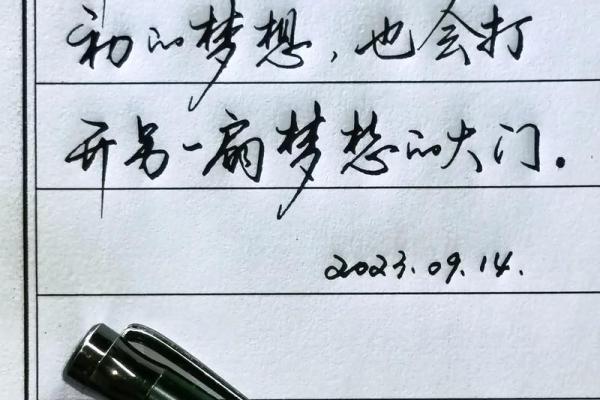 初的梦想，也会打
开另一扇梦想的大门。
2023.09.14.